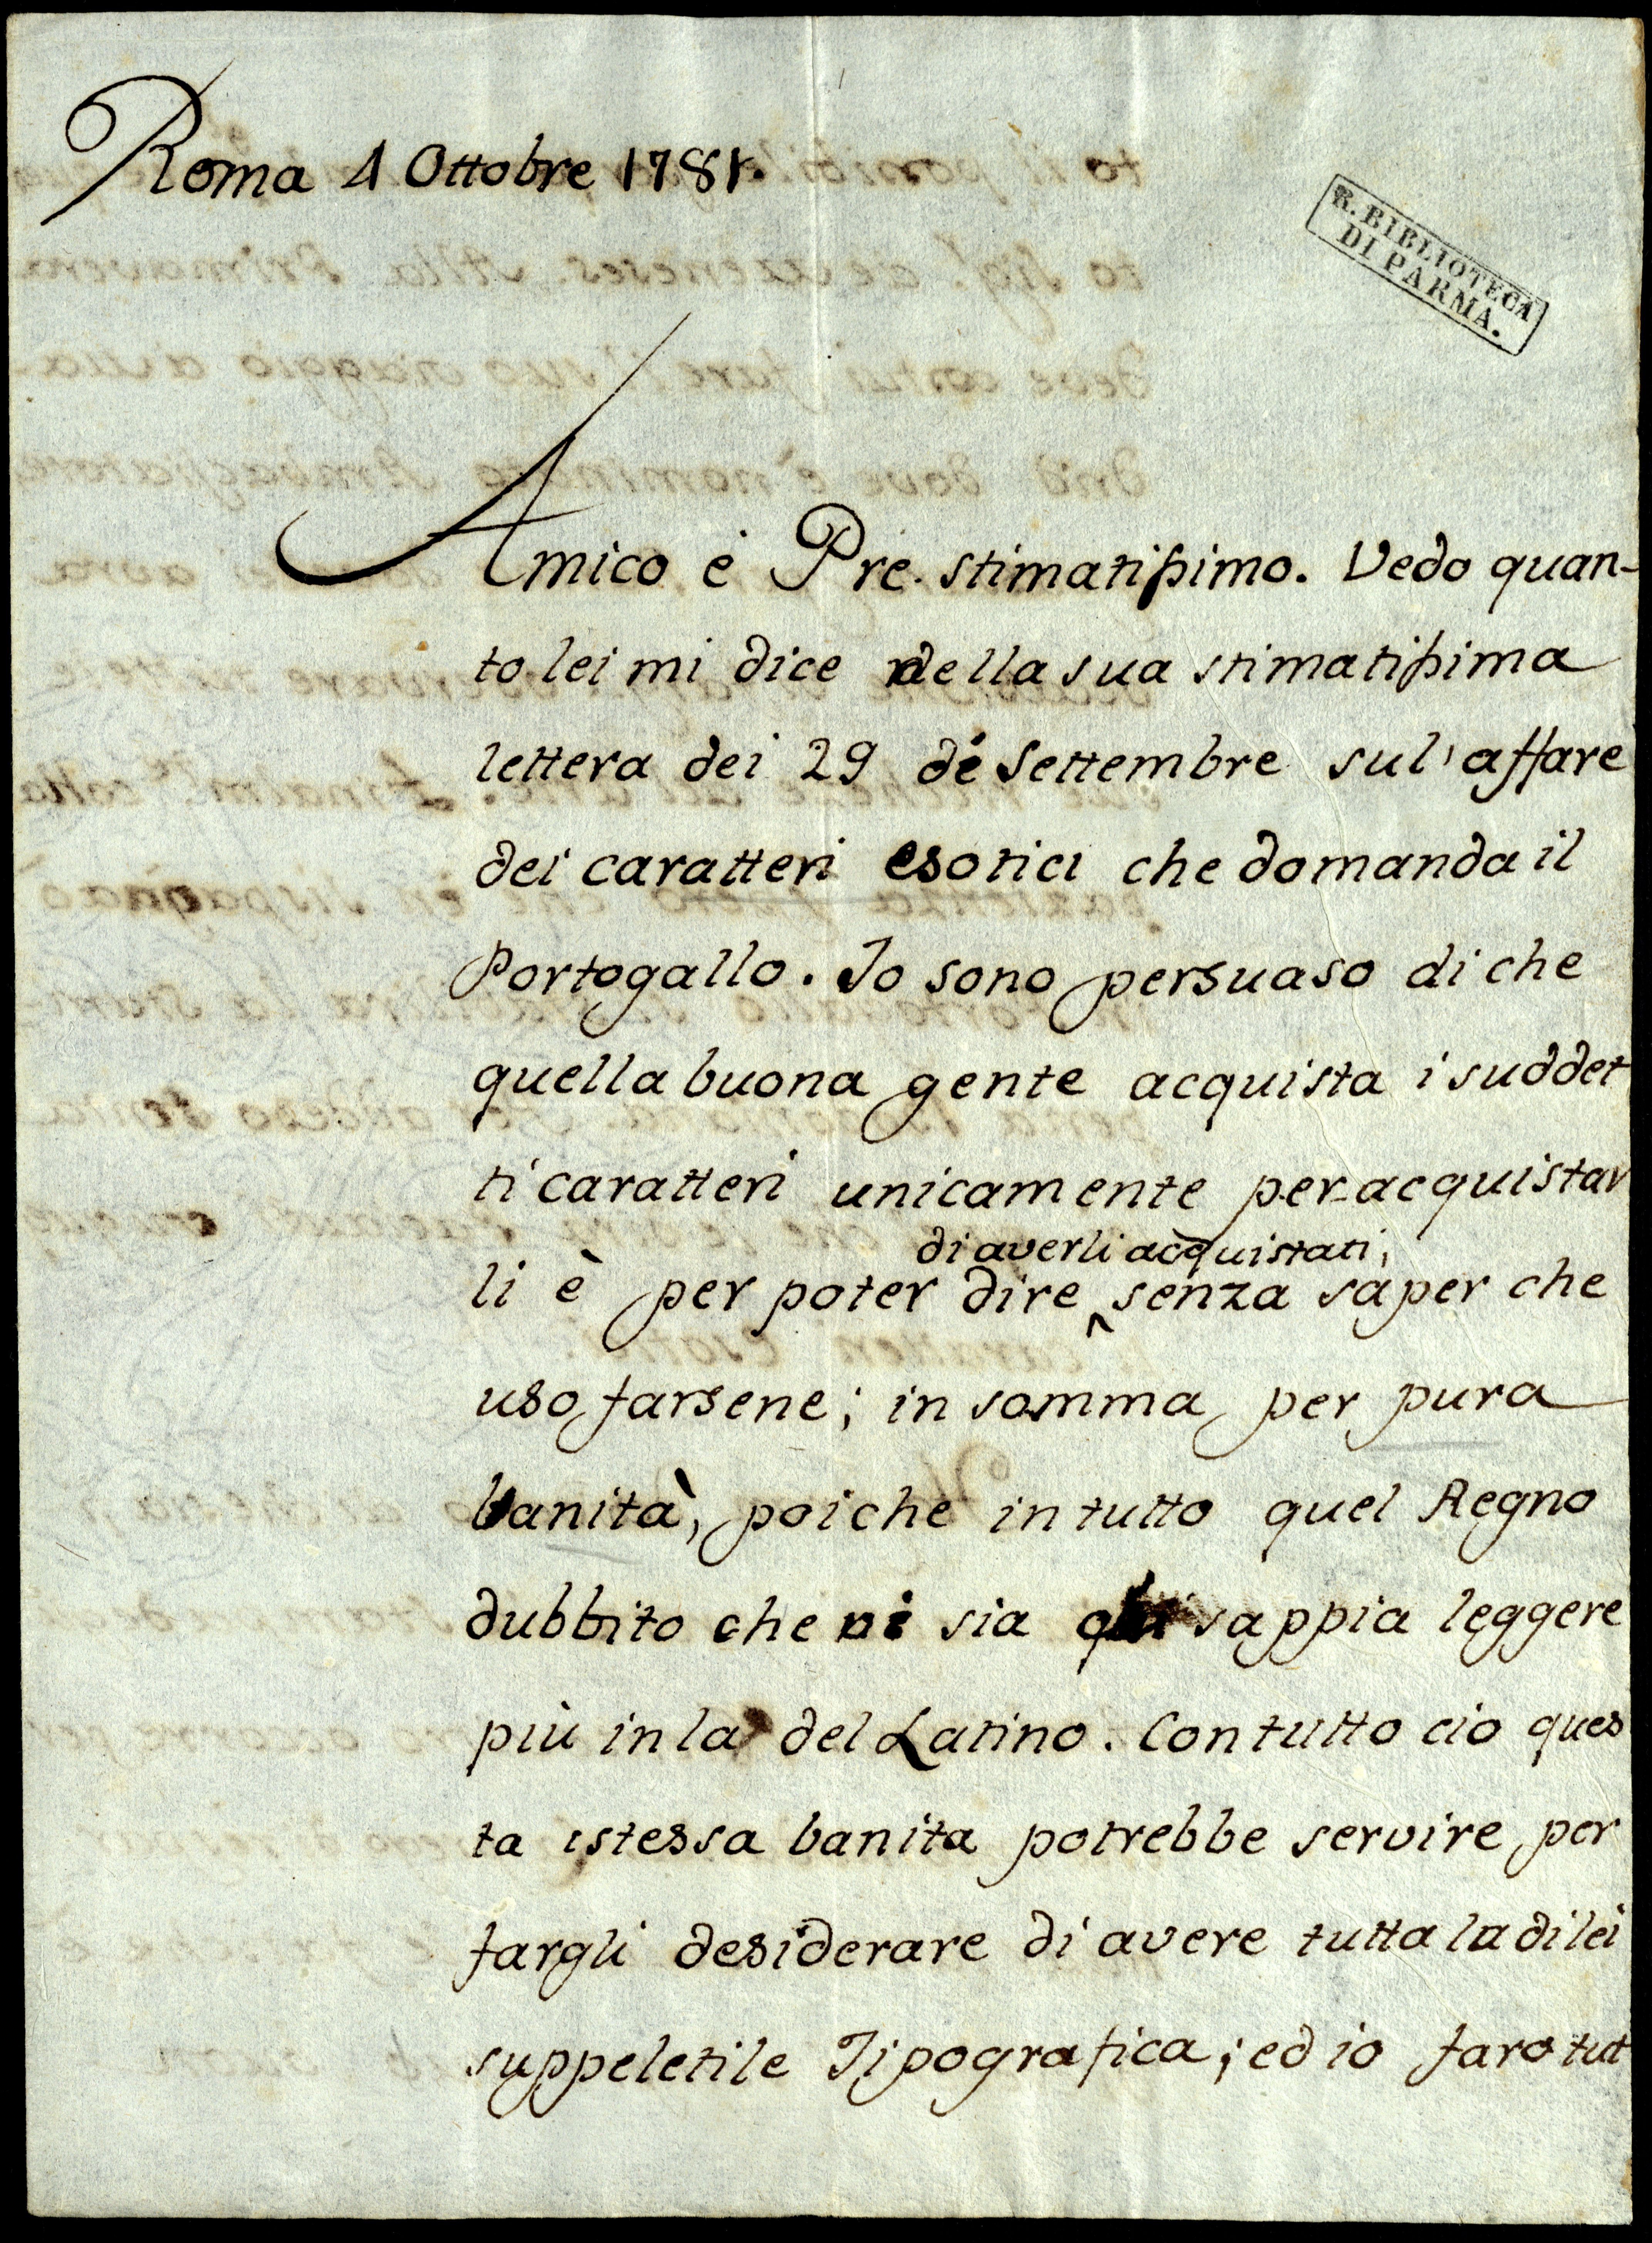 Roma 4 Ottobre 1781.
R. BIBLIOTECA
DI PARMA.
Amico è Pre. stimatissimo. Vedo quan-
to lei mi dice nella sua stimatissima
lettera dei 29 di Settembre sul' affare
dei caratteri esotici che domanda il
Portogallo. Io sono persuaso di che
quella buona gente acquista i suddet
ti caratteri unicamente per acquistar
di averli acquistati,
li è per poter dire senza saper che
uso farsene; in somma per pura
banità, poiche in tutto quel Regno
dubbito che vi sia chi sappia leggere
più in la del Latino. Con tutto cio ques
ta istessa banita potrebbe servire per
fargli desiderare di avere tutta la di lei
suppeletile Tipografica; ed io faro tut